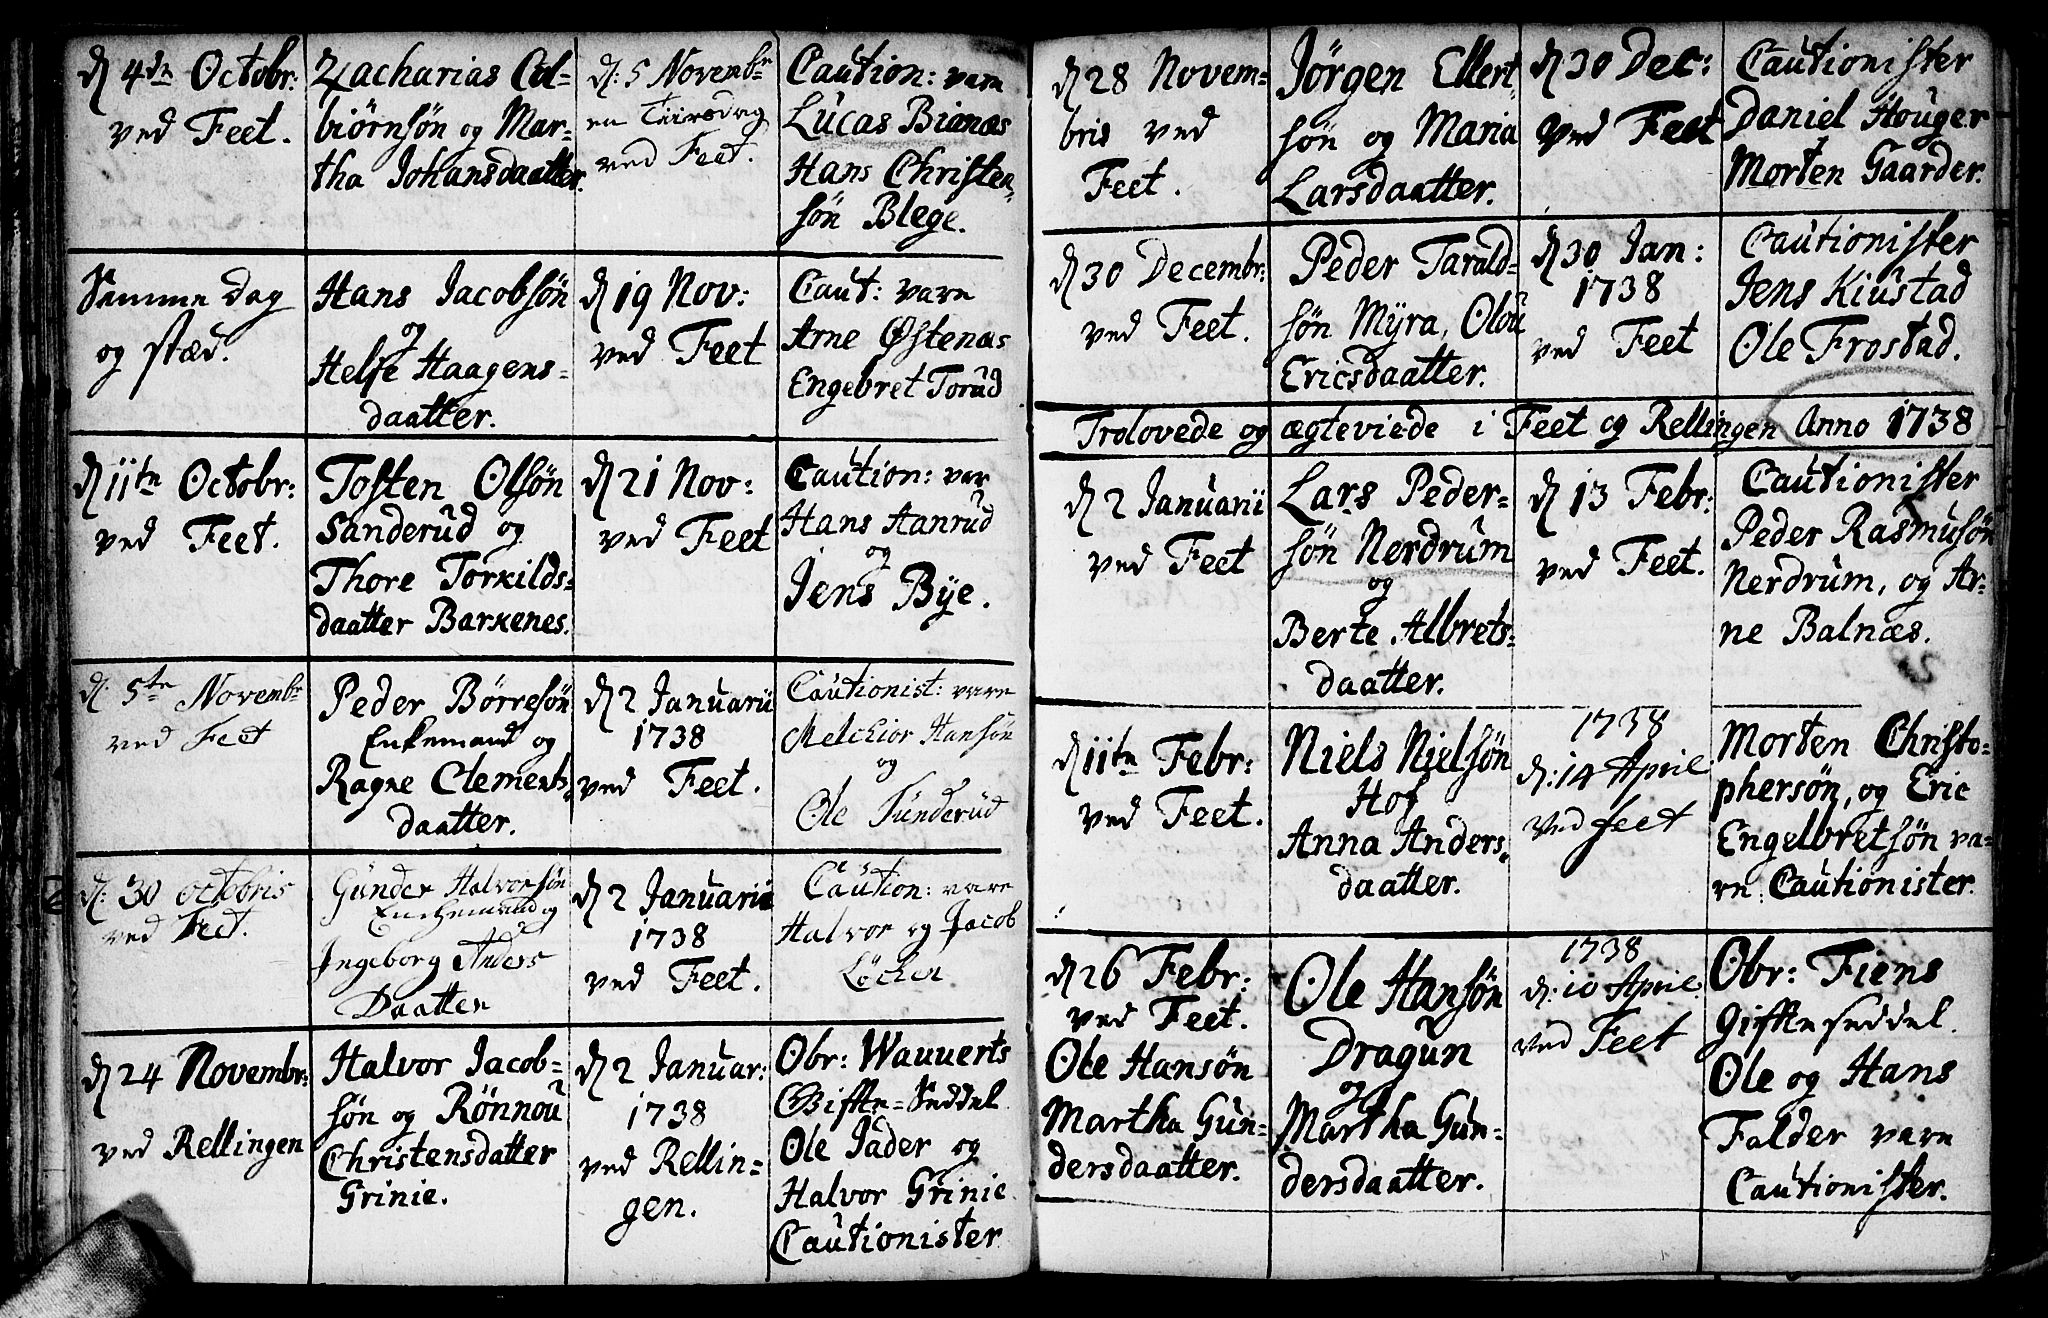 d 4de Octobr:
ved Feet.
Zacharias Col-
biörnsøn og Mar-
tha Johansdaatter.
d: 5 Novembr
en Tiirsdag
ved Feet.
Caution: vare
Lucas Bianæs
Hans Christen-
søn Blege.
Samme dag
og stæd.
Hans Jacobsøn
og
Helje Haagens-
daatter.
d 19 Nov:
ved Feet
Caut: vare
Arne Østenæs
Engebret Torud
d 11te Octobr:
ved Feet.
Tosten Olsøn
Sanderud og
Thore Torkilds-
daatter Barkenes.
d 21 Nov:
ved Feet
Caution: var
Hans Aanrud
og
Jens Bÿe.
d: 5te Novembr
ved Feet
Peder Børresøn
Enkemand og
Ragne Clements-
daatter.
d 2 Januarii
1738
ved Feet.
Cautionist: vare
Melchior Hansøn
og
Ole Funderud
d: 30 octobris
ved Feet.
Gunder Halvorsøn
Enchemand og
Ingeborg Anders
Daatter
d 2 Januarii
1738
ved Feet.
Caution: vare
Halvor og Jacob
Löcher
d 24 Novembr:
ved Rellingen
Halvor Jacob-
søn og Rönnou
Christensdatter
Grinie.
d 2 Januar:
1738
ved Rellin-
gen.
Obr: Wauverts
Giffte-Seddel
Ole Jader og
Halvor Grinie
Cautionister
d 28 Novem-
bris ved
Feet.
Jörgen Ellert-
søn og Maria
Larsdaatter.
d 30 Dec:
ved Feet
Cautionister
Daniel Houger
Morten Gaarder.
d 30 Decembr:
ved Feet.
Peder Tarald-
søn Mÿra, Olou
Ericsdaatter.
d 30 Jan:
1738
ved Feet
Cautionister
Jens Kiustad
Ole Frostad.
Trolovede og ægteviede i Feet og Rellingen Anno 1738
d 2 Januarii
ved Feet
Lars Peder-
søn Nerdrum
og
Berte Albrets-
daatter.
d 13 Febr:
ved Feet.
Cautionister
Peder Rasmusøn
Nerdrum, og Ar-
ne Balnæs.
d 11te Febr:
ved Feet.
Niels Nielsøn
Hof
Anna Anders-
daatter.
1738
d: 14 April
ved feet
Morten Christo-
phersøn, og Eric
Engelbretsøn va-
re Cautionister.
d 26 Febr:
ved Feet.
Ole Hansøn
Martha Gun-
dersdaatter.
Ole Hansøn
Dragun
og
Martha Gun-
dersdaatter.
1738
d: 10 April
ved Feet
Obr: Fiens
Giffte seddel.
Ole og Hans
Falder vare
Cautionister.